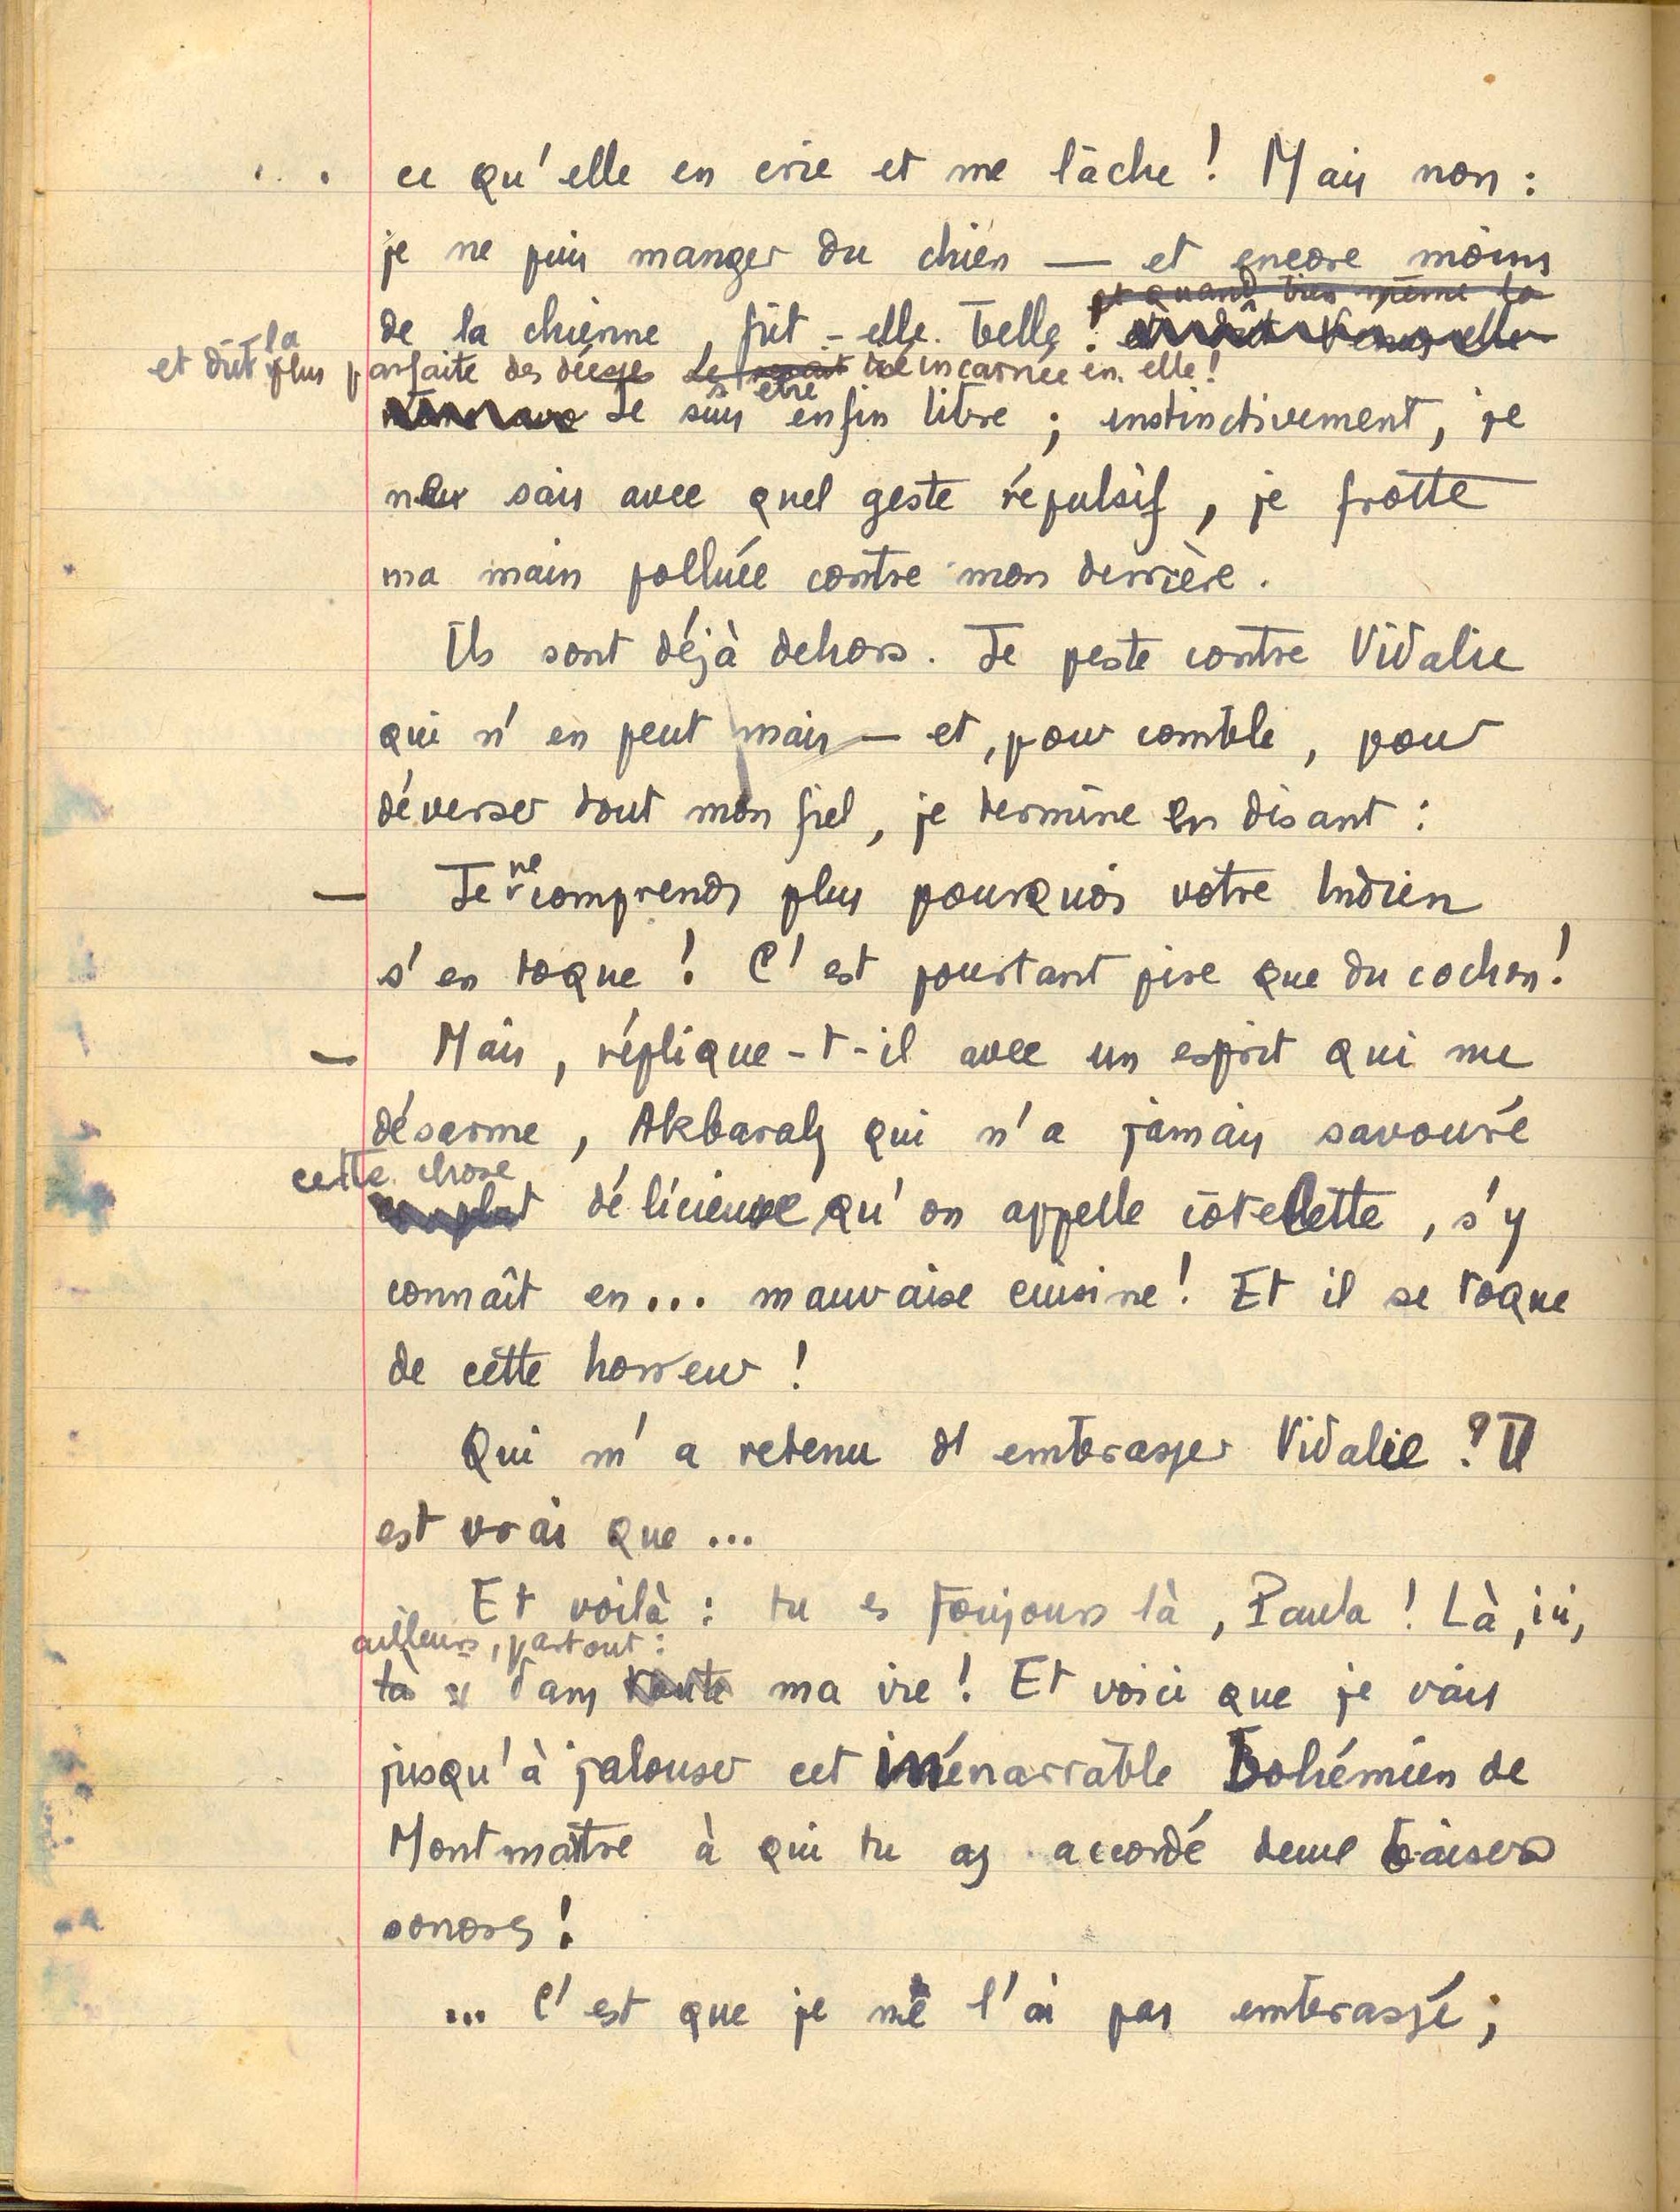 ... ce qu'elle en crie et me lâche ! Mais non :
je ne puis manger du chien — et encore moins
et quand bien même la
de la chienne, fût-elle belle !
et dût la plus parfaite des déesses être incarnée en elle !
Je suis enfin libre ; instinctivement, je
ne sais avec quel geste répulsif, je frotte
ma main polluée contre mon derrière.
Ils sont déjà dehors. Je peste contre Vidalie
qui n'en peut mais — et, pour comble, pour
déverser tout mon fiel, je termine en disant :
— Je ne comprends plus pourquoi votre Indien
s'en toque ! C'est pourtant pire que du cochon !
— Mais, réplique-t-il avec un esprit qui me
désarme, Akbaraly qui n'a jamais savouré
cette chose
délicieuse qu'on appelle côtelette, s'y
connaît en... mauvaise cuisine ! Et il se toque
de cette horreur !
Qui m'a retenu d'embrasser Vidalie ? Il
est vrai que ...
Et voilà : tu es toujours là, Paula ! Là, ici,
ailleurs, partout :
là dans toute ma vie ! Et voici que je vais
jusqu'à jalouser cet inénarrable bohémien de
Montmatre à qui tu as accordé deux baisers
sonores !
... C'est que je ne l'ai pas embrassé ;